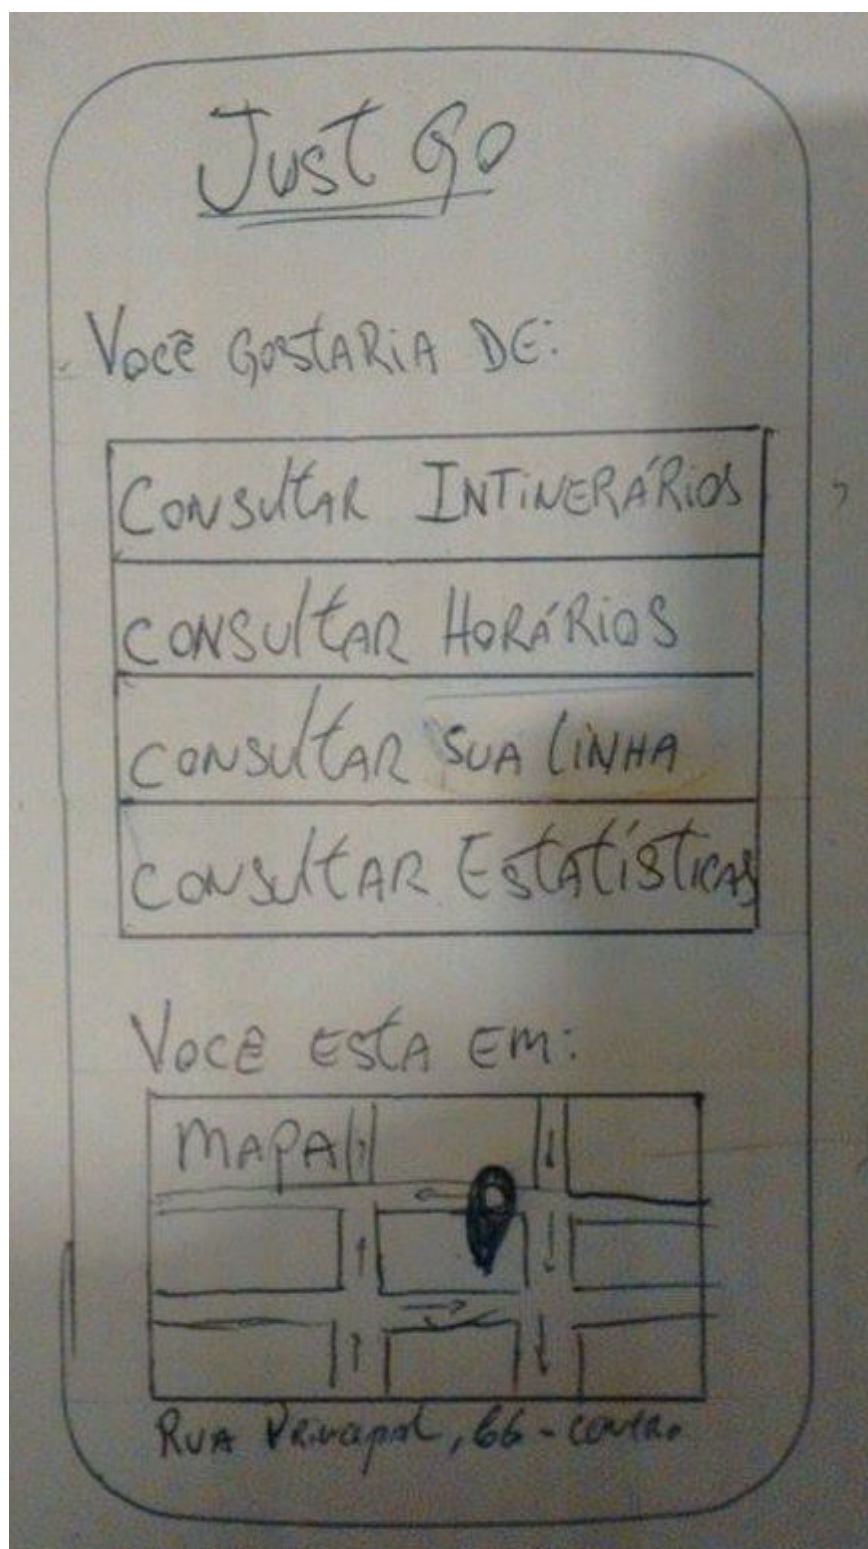 Just Go
Você GostARiA DE:
CONSUltAR INTINERÁRiOS
CONSUltAR HORÁRiOS
CONSUltAR SUA LINHA
CONSUltAR EStAtíStICAS
VOCE EStA EM:
MAPA
RUA Principal, 66 - centro